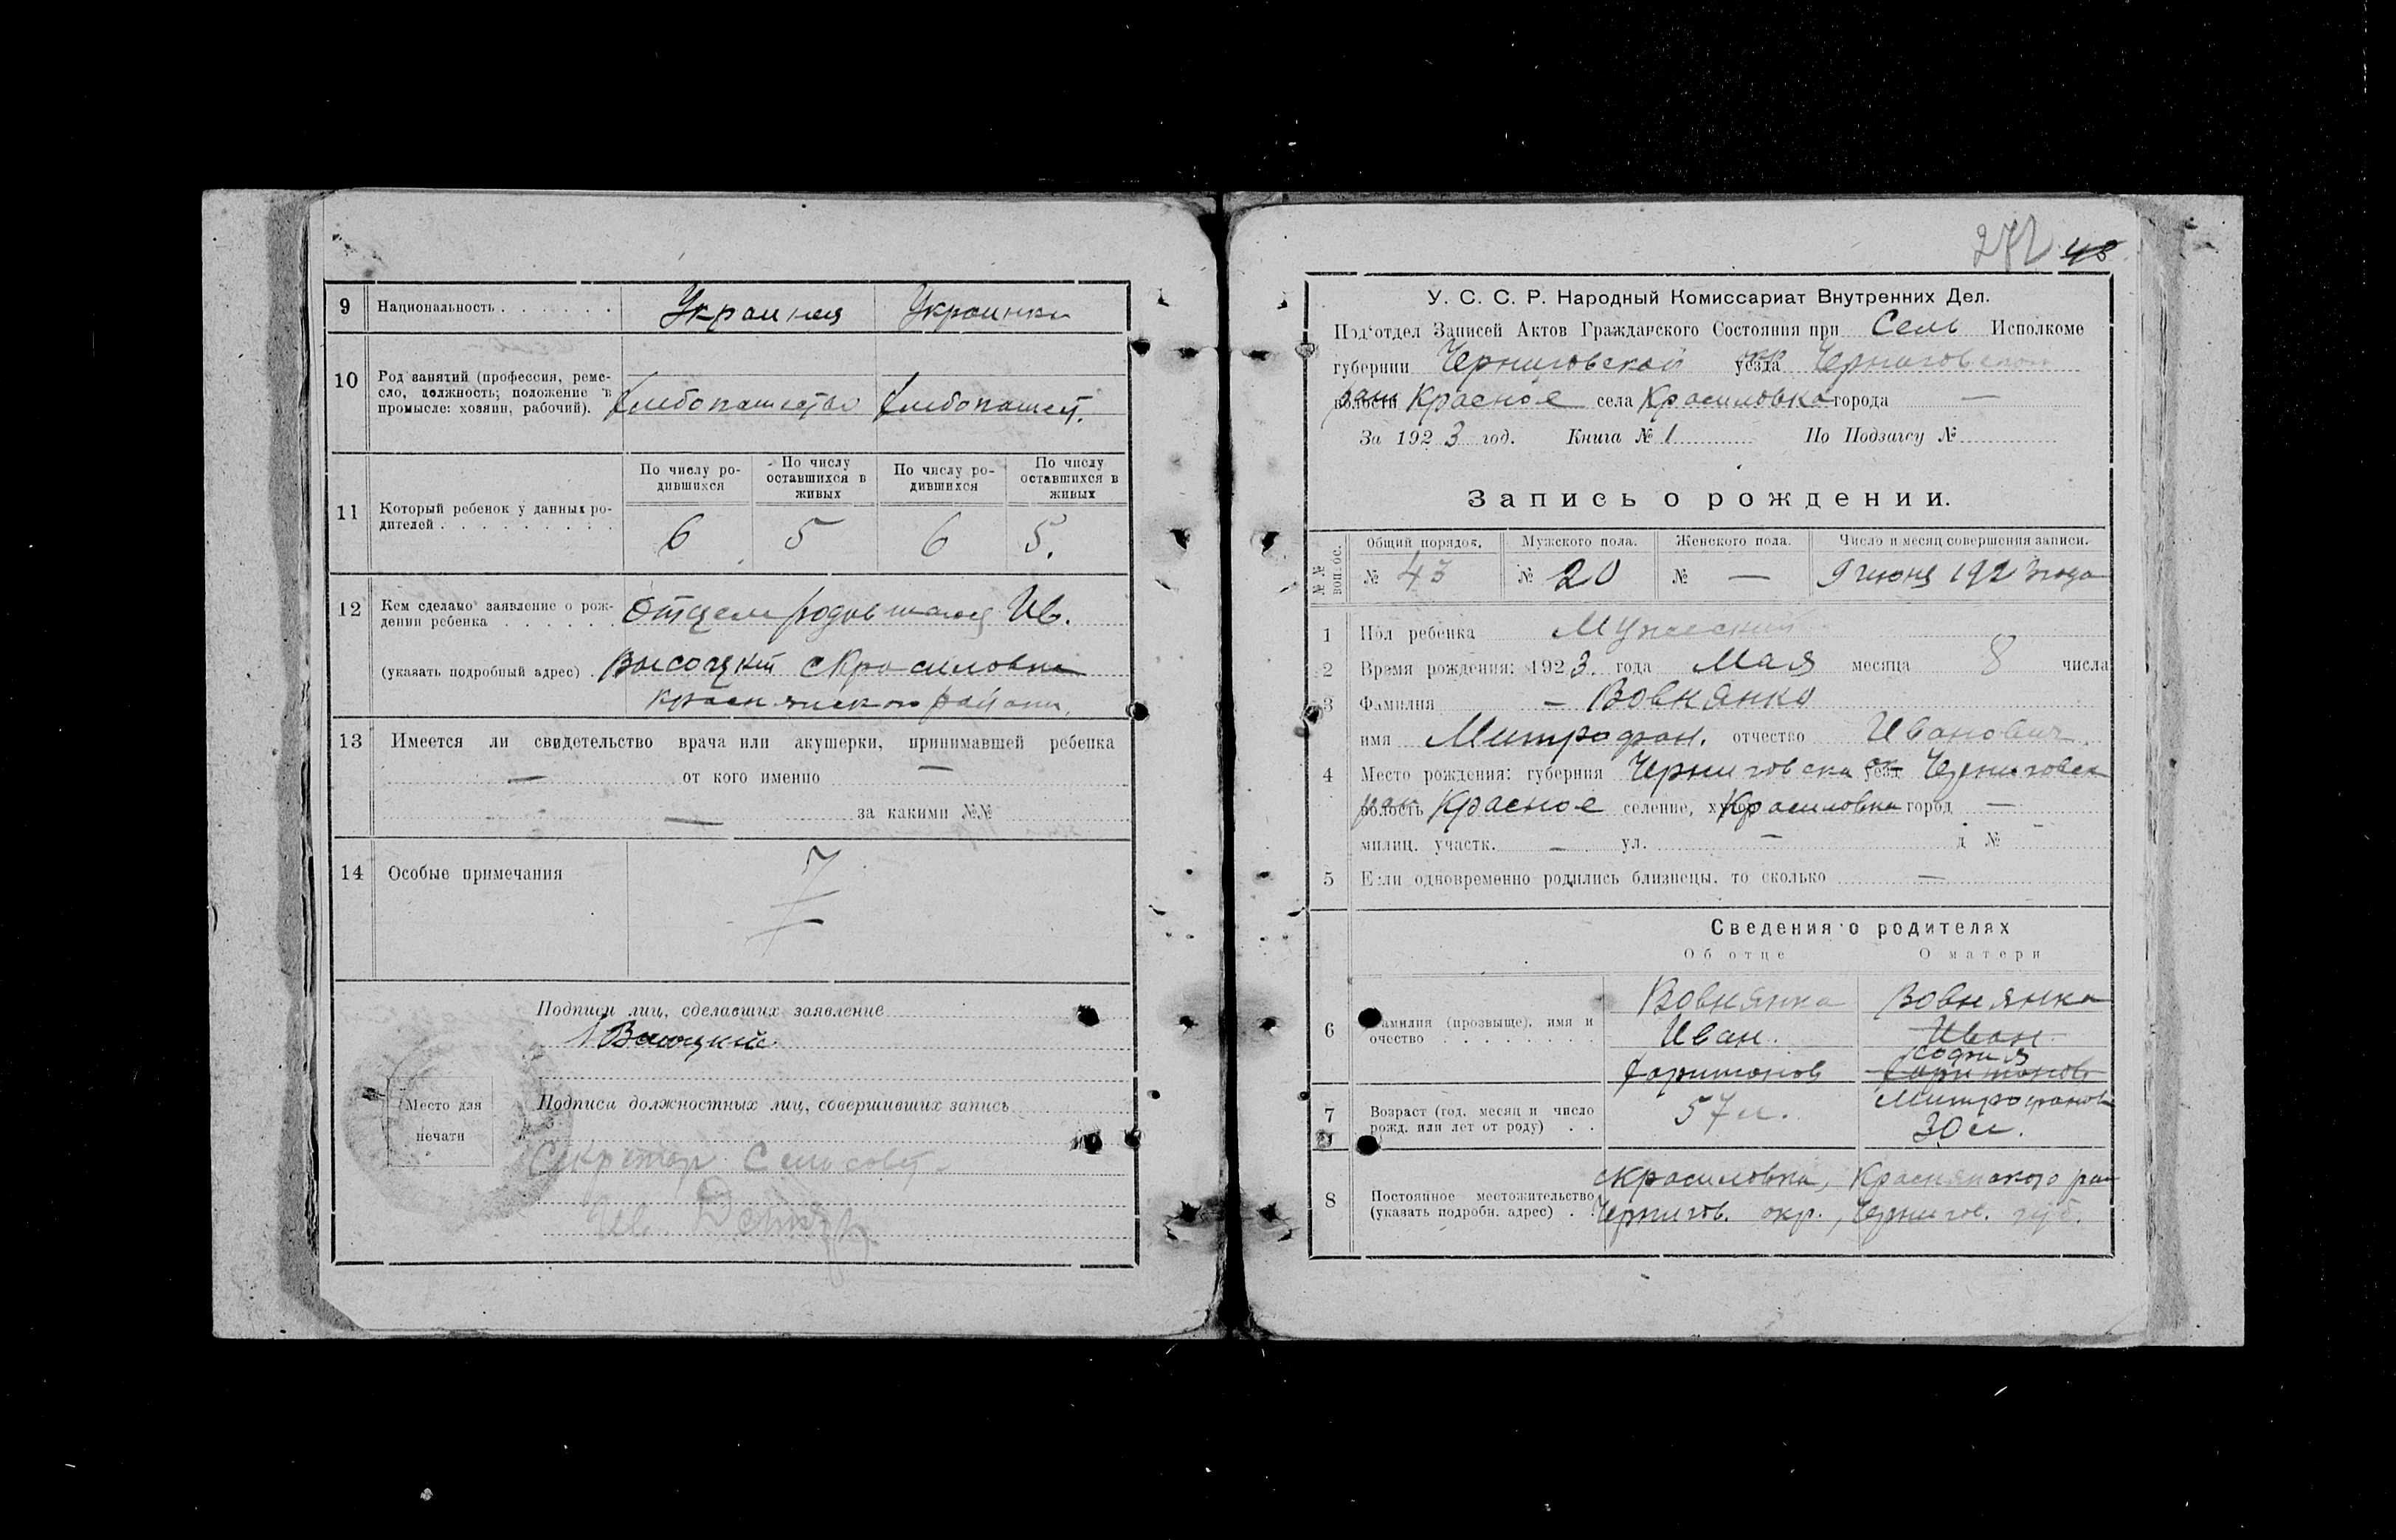 9 Национальность . . . . . . Украинец Украинка
10 Род занятий (профессия, реме-
сло, должность; положение в
промысле: хозяин, рабочий). Хлебопашество Хлебопашест.
11 Который ребенок у данных ро-
дителей . . . . . . . . .
По числу ро-
дившихся
По числу
оставшихся в
живых
По числу ро-
дившихся
По числу
оставшихся в
живых
6 5 6 5.
12 Кем сделано заявление о рож-
дении ребенка . . . . . . Отцем Ив.
(указать подробный адрес) . Высоцкий с Красиловка
Краснянского района,
13 Имеется ли свидетельство врача или акушерки, принимавшей ребенка
— от кого именно —
— за какими №№
14 Особые примечания
Подписи лиц, сделавших заявление
Высоцкий
Место для
печати
Подписи должностных лиц, совершивших запись
Секретар Сельсовет
Ив.
272 43
У. С. С. Р. Народный Комиссариат Внутренних Дел.
Под'отдел Записей Актов Гражданского Состояния при Сель Исполкоме
губернии Черниговской уезда окр Черниговской
волости рай Красное села Красиловка города —
За 1923 год. Книга № 1 По Подзагсу №
Запись о рождении.
№ № воп.ос.
Общий порядок. Мужского пола. Женского пола. Число и месяц совершения записи.
№ 43 № 20 № — 9 июня 1923 года
1 Пол ребенка Мужеский
2 Время рождения: 1923. года Мая месяца 8 числа
3 Фамилия — Вовнянко
имя Митрофан. отчество Иванович.
4 Место рождения: губерния Черниговска уезд ок Черниговск
волость рай Красное селение, хутор Красиловка город —
милиц. участк. — ул. — д №
5 Если одновременно родились близнецы, то сколько —
Сведения о родителях
Об отце О матери
6 Фамилия (прозвыще), имя и
очество . . . . . . . .
Вовнянка Вовнянка
Иван. Иван
София
Харитонов Харитонов
Митрофанов
7 Возраст (год, месяц и число
рожд. или лет от роду) . .
57 л. 30 л.
8 Постоянное местожительство
(указать подробн. адрес) .
с Красиловка, Краснянского рай
Чернигов. окр., Чернигов. губ.